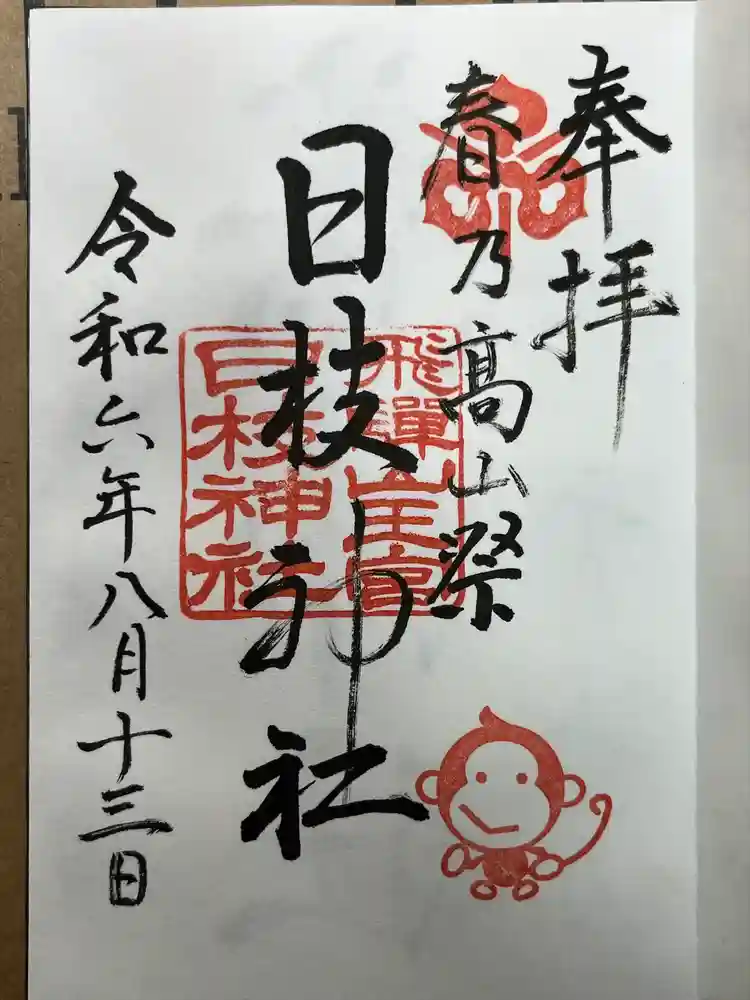 奉拝
春乃高山祭
日枝神社
飛騨山王宮
日枝神社
令和六年八月十三日